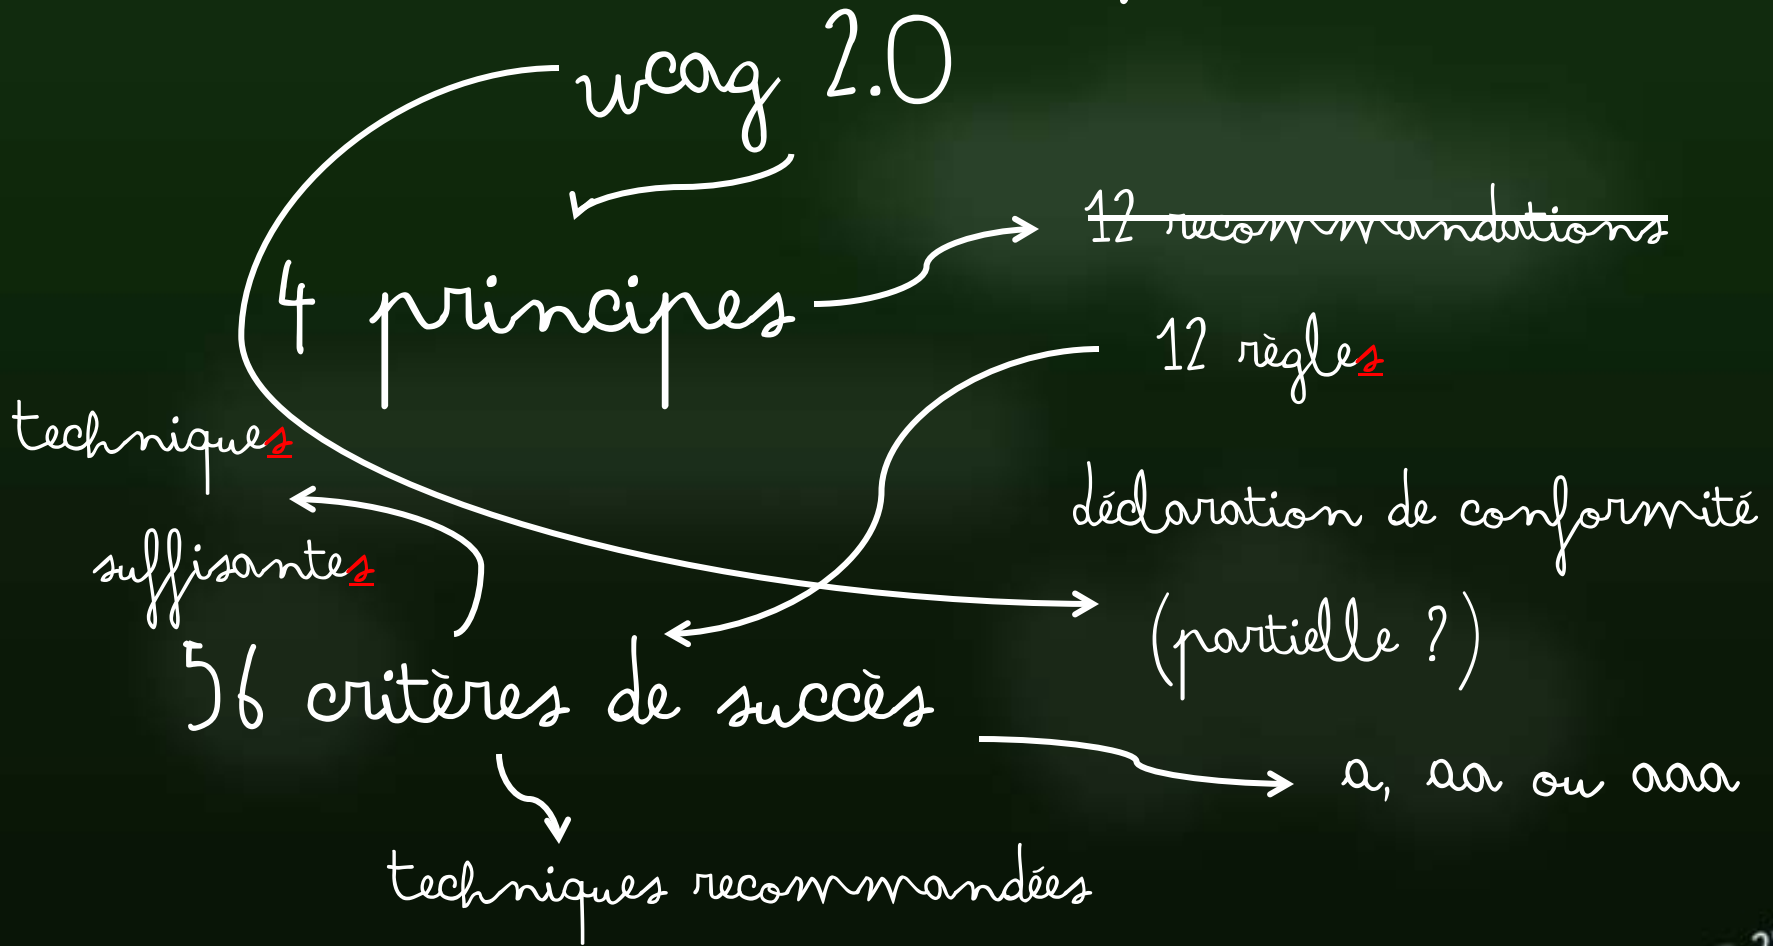 wcag 2.0
12 recommandations
4 principes
12 règles
techniques
suffisantes
déclaration de conformité
(partielle ?)
56 critères de succès
a, aa ou aaa
techniques recommandées